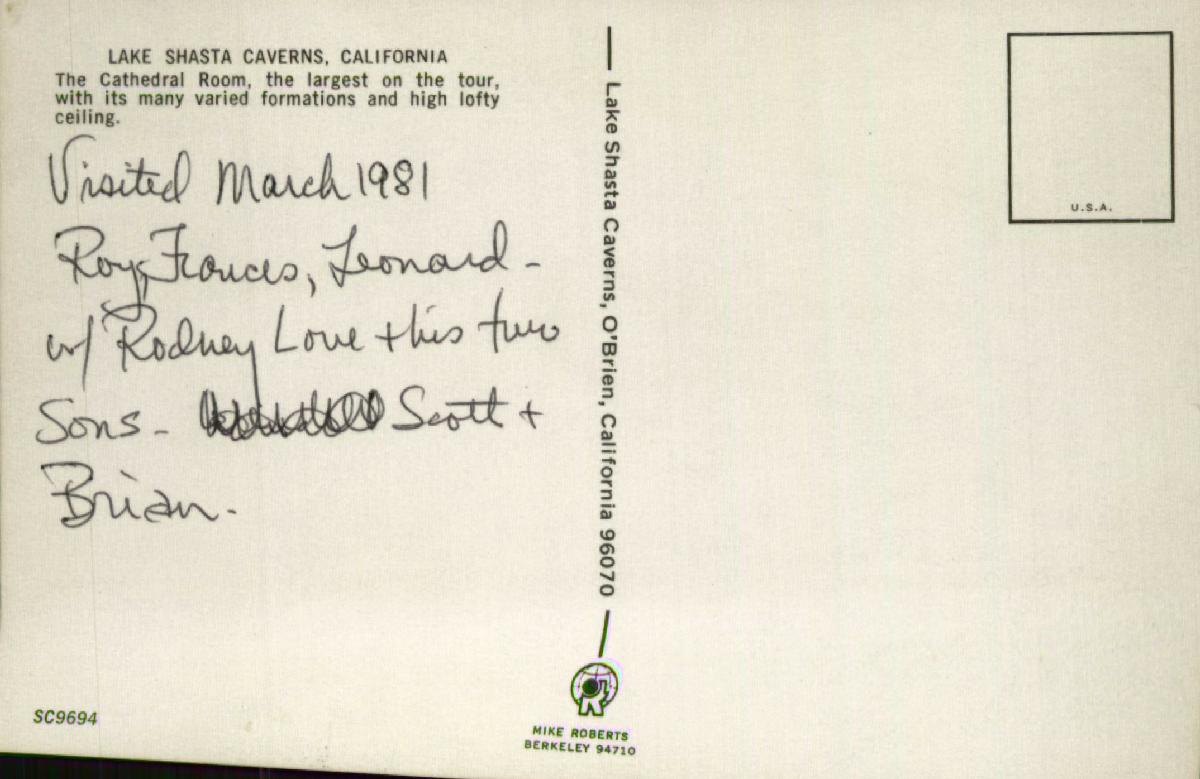 LAKE SHASTA CAVERNS, CALIFORNIA
The Cathedral Room, the largest on the tour,
with its many varied formations and high lofty
ceiling.
Visited March 1981
Roy, Frances, Leonard -
w/ Rodney Love + his two
Sons - Scott +
Brian.
SC9694
Lake Shasta Caverns, O'Brien, California 96070
MIKE ROBERTS
BERKELEY 94710
U.S.A.